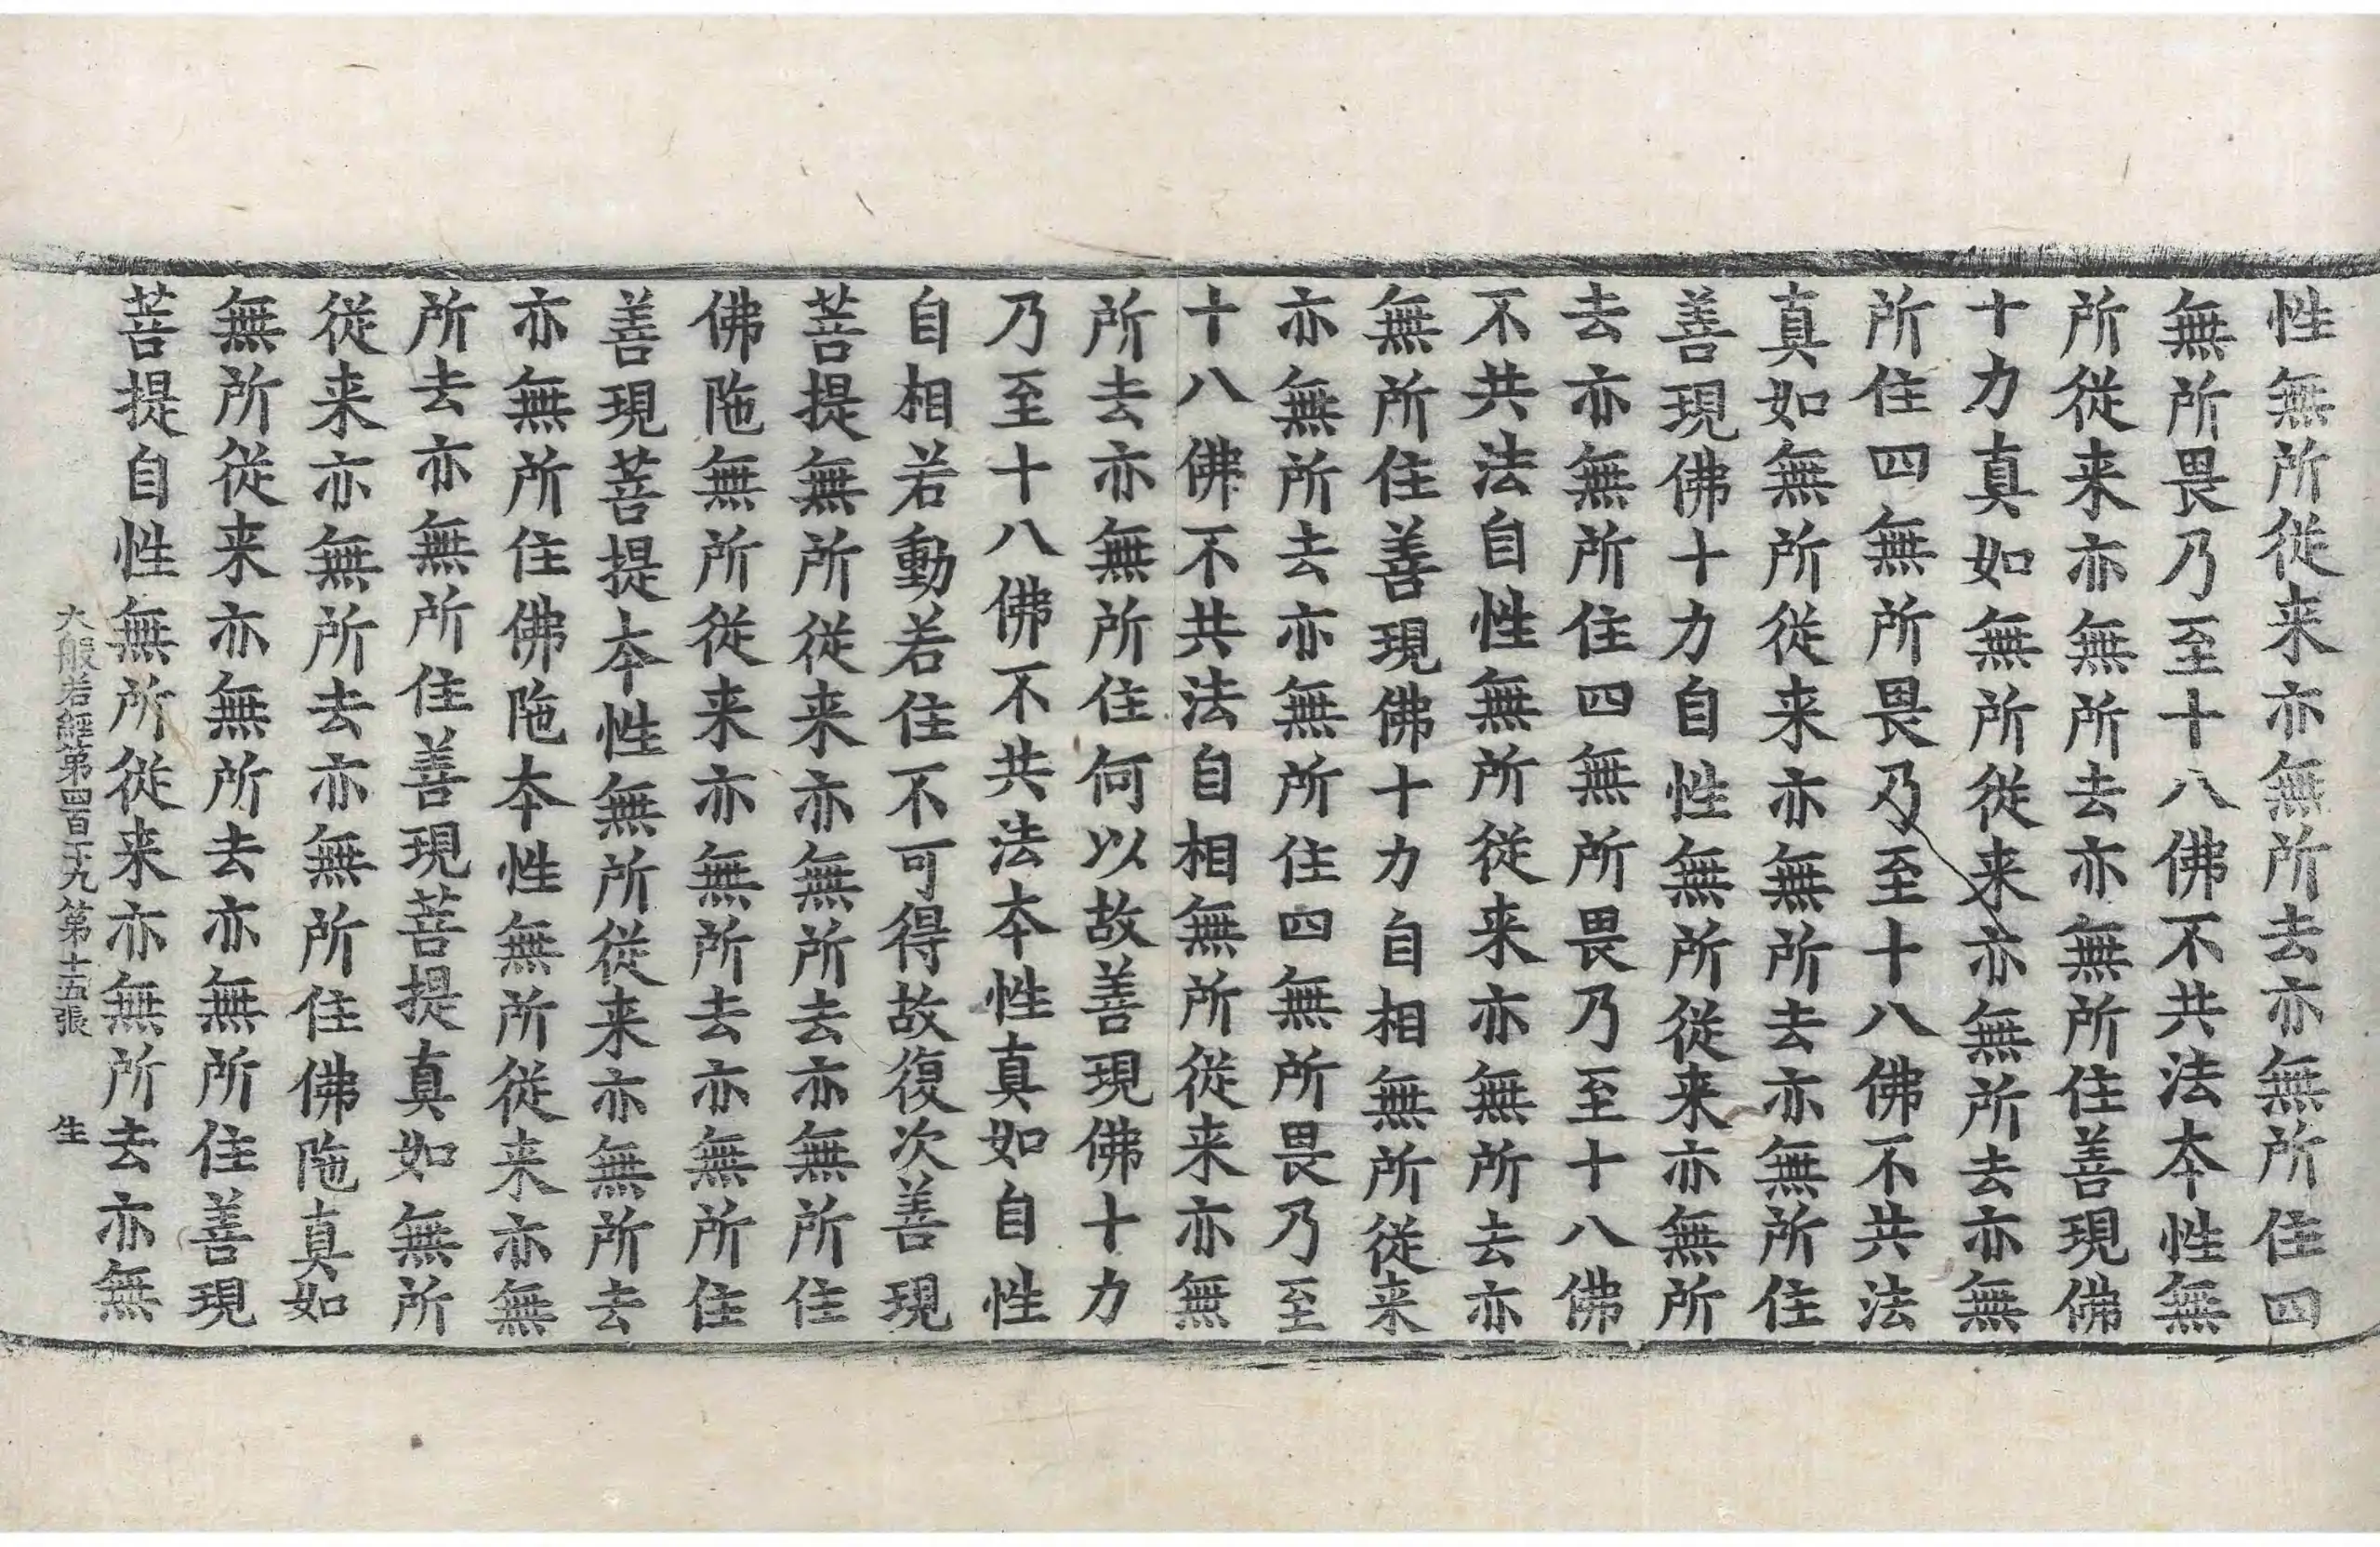 性無所從来亦無所去亦無所住四
無所畏乃至十八佛不共法夲性無
所從来亦無所去亦無所住善現佛
十力真如無所從来亦無所去亦無
所住四無所畏乃至十八佛不共法
真如無所從来亦無所去亦無所住
善現佛十力自性無所從来亦無所
去亦無所住四無所畏乃至十八佛
不共法自性無所從来亦無所去亦
無所住善現佛十力自相無所從来
亦無所去亦無所住四無所畏乃至
十八佛不共法自相無所從来亦無
所去亦無所住何以故善現佛十力
乃至十八佛不共法夲性真如自性
自相若動若住不可得故復次善現
菩提無所從来亦無所去亦無所住
佛陁無所從来亦無所去亦無所住
善現菩提夲性無所從来亦無所去
亦無所住佛陁夲性無所從来亦無
所去亦無所住善現菩提真如無所
從来亦無所去亦無所住佛陁真如
無所從来亦無所去亦無所住善現
菩提自性無所從来亦無所去亦無
大般若經第四百十九 第十五張 生